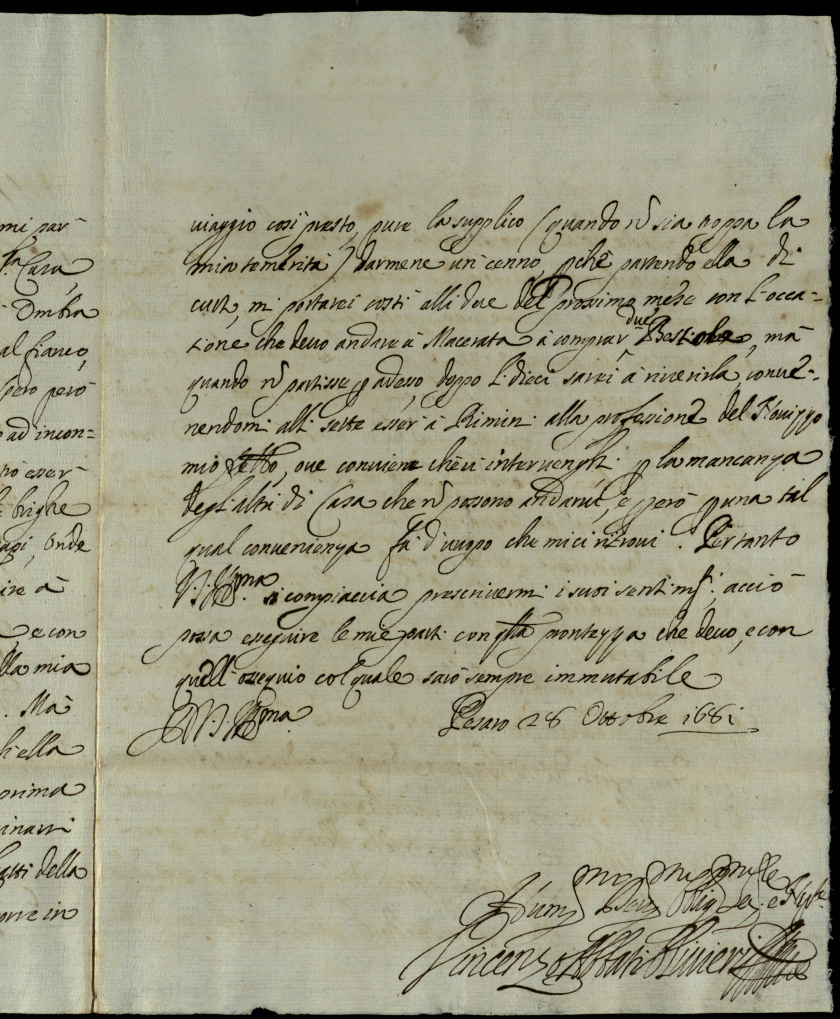 mi par-
Casa,
Ombra
al fianco,
però
ad incon=
esser
brighe
Onde
ire à
e con
lla mia
. Mà
ch'ella
prima
della
viaggio così presto, pure la supplico (quando nõ sia troppa la
mia temerità) darmene un cenno, pche partendo ella di
curt, mi portarei costì alli due del prossimo mese con l'occa=
tione che devo andare à Macerata à comprar due Bestiole, mà
quando nõ partisse p adesso, doppo li dieci sarei à riverirla, conve=
nendomi alli sette esser à Rimini alla professione del
mio ove conviene che vi intervenghi p la mancanza
degl'altri di Casa che nõ possono andarvi, e però p una tal
qual convenienza fà d'uopo che mi ci ritrovi. Pertanto
V.S. Illma si compiaccia prescrivermi i suoi sentimti acciò
possa eseguire le mie parti con qlla prontezza che devo, e con
quell'ossequio col quale sarò sempre immutabile
D V.S. Illma Pesaro 28 Ottobre 1681
Vincenzo Abbati Olivieri